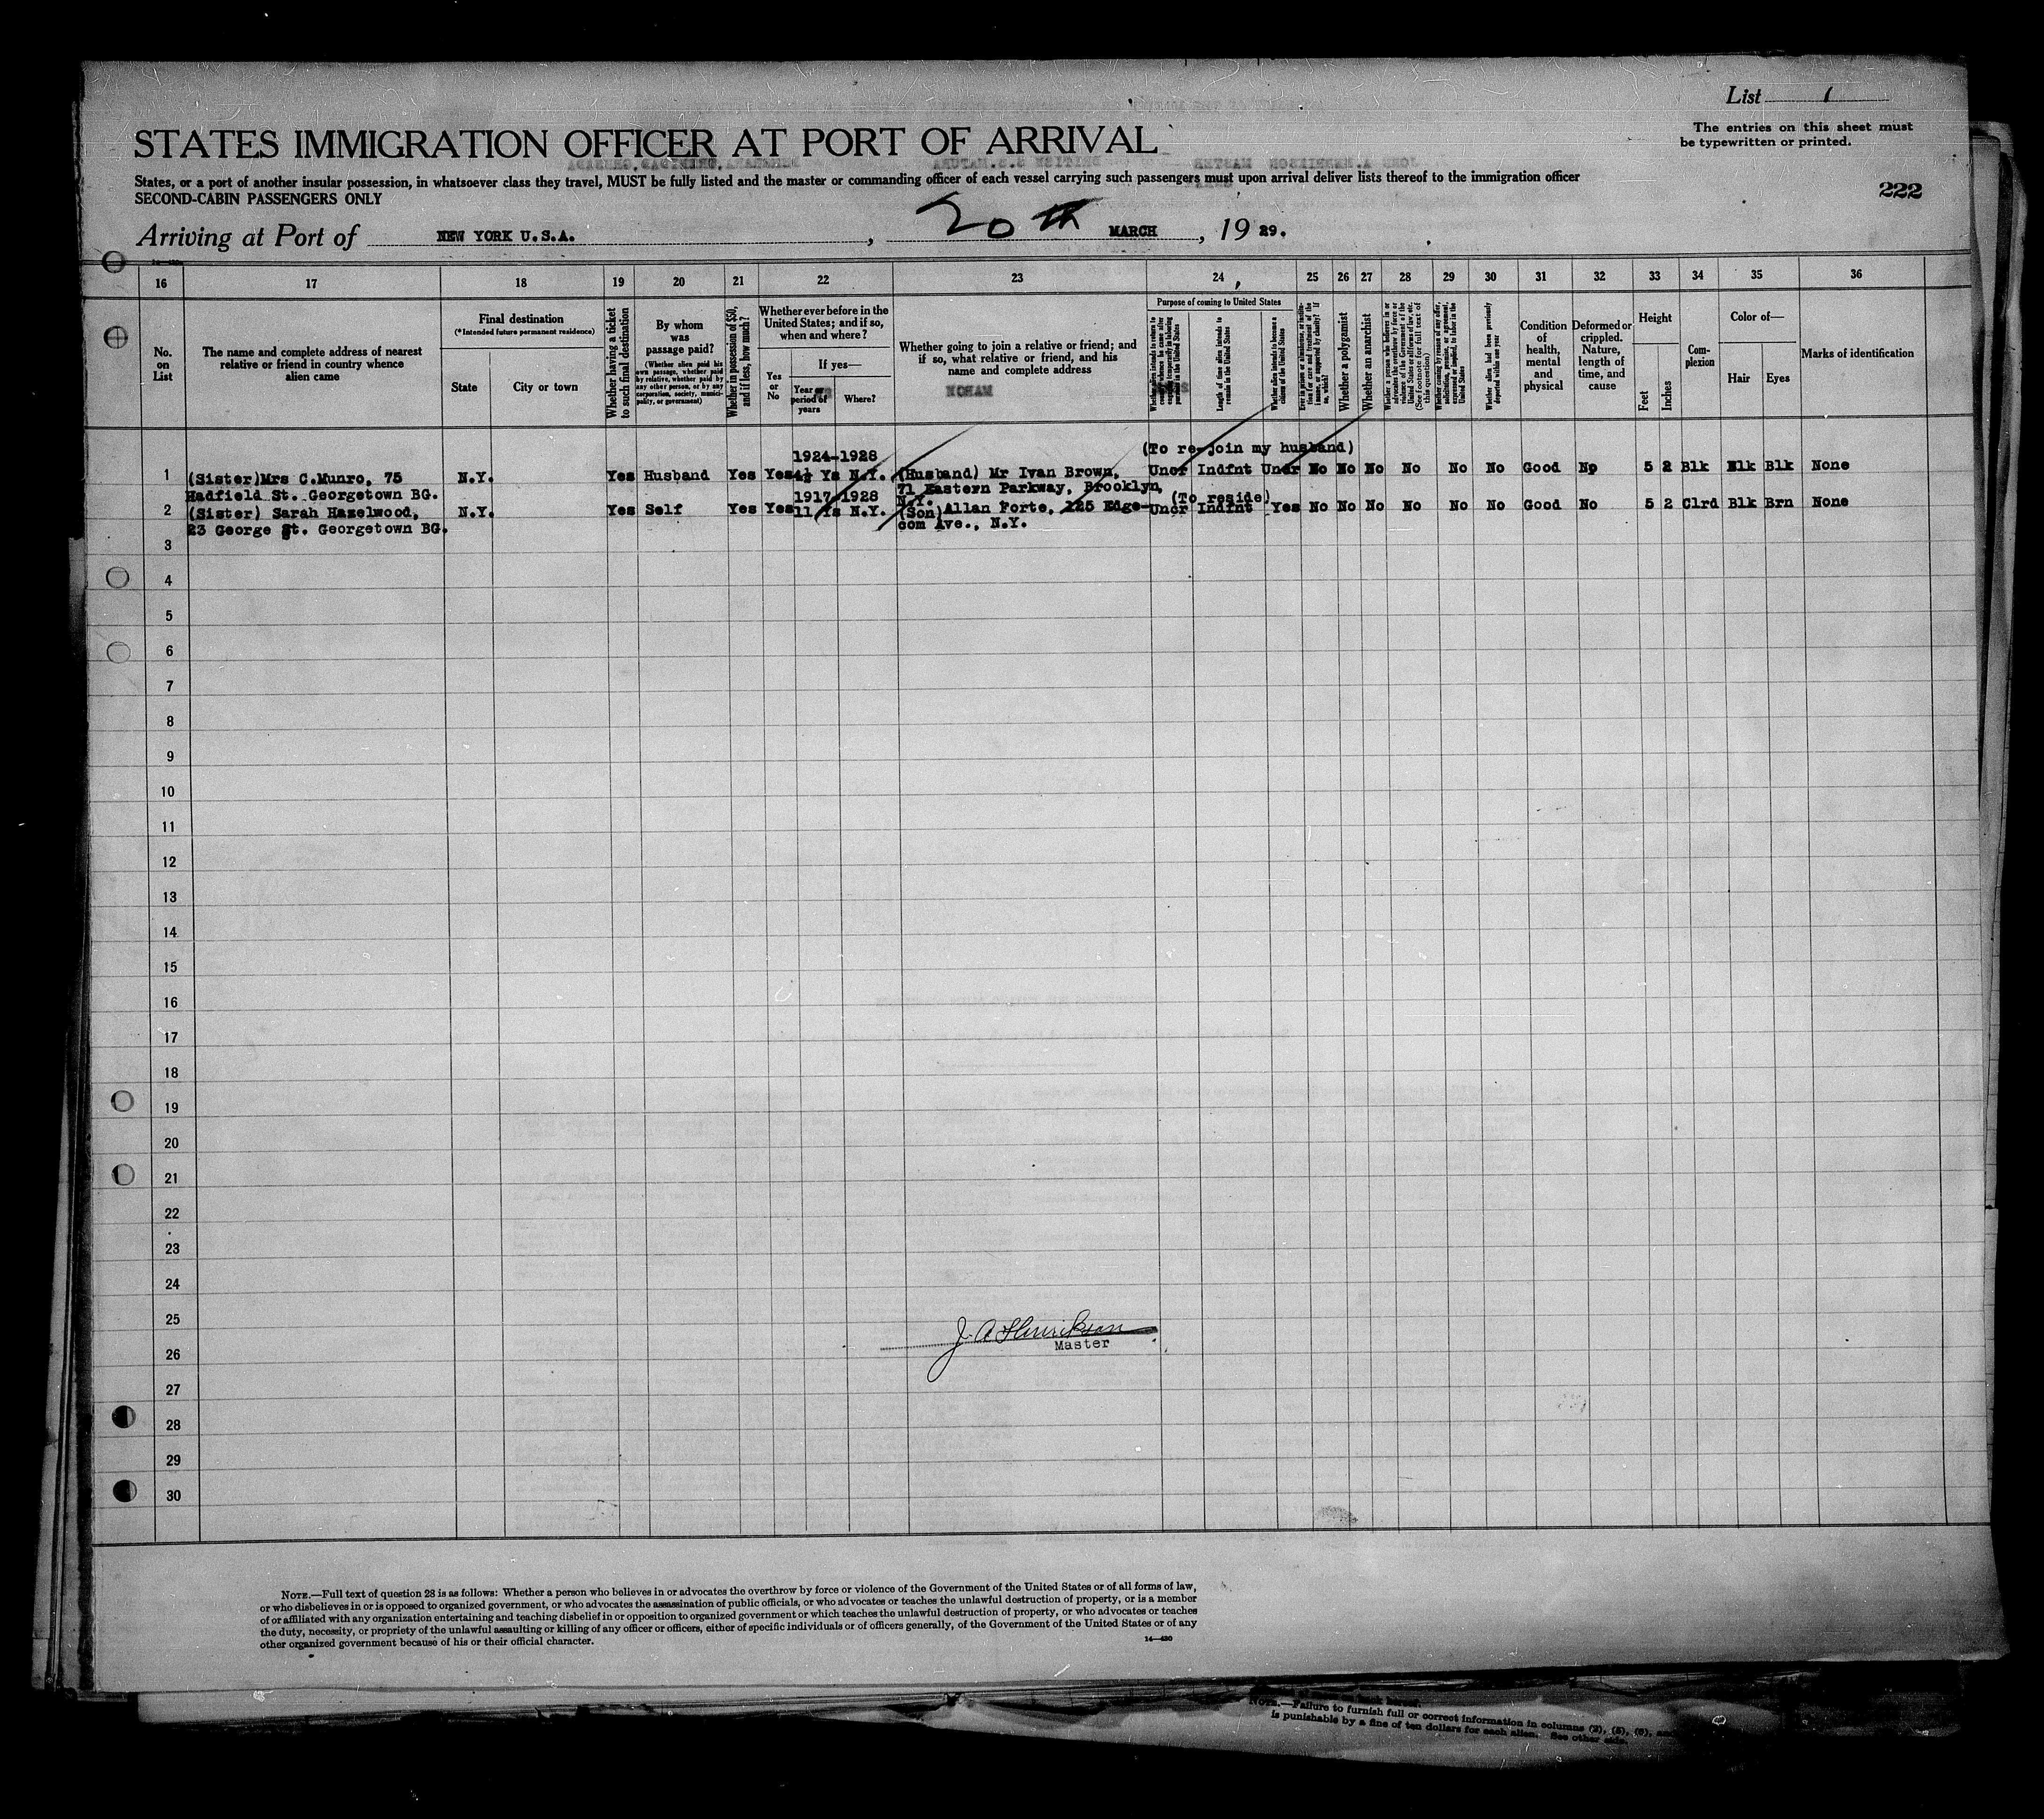 List 1
The entries on this sheet must
be typewritten or printed.
STATES IMMIGRATION OFFICER AT PORT OF ARRIVAL
States, or a port of another insular possession, in whatsoever class they travel, MUST be fully listed and the master or commanding officer of each vessel carrying such passengers must upon arrival deliver lists thereof to the immigration officer
SECOND-CABIN PASSENGERS ONLY
222
Arriving at Port of NEW YORK U.S.A. , 20th MARCH , 19 29.
16 17 18 19 20 21 22 23 24 25 26 27 28 29 30 31 32 33 34 35 36
No. on List
The name and complete address of nearest relative or friend in country whence alien came
Final destination
(*Intended future permanent residence)
State
City or town
Whether having a ticket to such final destination
By whom was passage paid?
(Whether alien paid his own passage, whether paid by relative, whether paid by any other person, or by any corporation, society, municipality, or government)
Whether in possession of $50, and if less, how much?
Whether ever before in the United States; and if so, when and where?
Yes or No
If yes—
Year or period of years
Where?
Whether going to join a relative or friend; and if so, what relative or friend, and his name and complete address
Purpose of coming to United States
Length of time alien intends to remain in the United States
Whether alien intends to become a citizen of the United States
Whether a polygamist
Whether an anarchist
Whether alien had been previously deported within one year
Condition of health, mental and physical
Deformed or crippled. Nature, length of time, and cause
Height
Feet
Inches
Complexion
Color of—
Hair
Eyes
Marks of identification
1924-1928 (To re-join my husband)
1 (Sister)Mrs C.Munro, 75 N.Y. Yes Husband Yes Yes 4½ Ys N.Y. (Husband) Mr Ivan Brown, Uncr Indfnt Uncr No No No No No No Good No 5 2 Blk Blk Blk None
Hadfield St. Georgetown BG. 1917-1928 71 Eastern Parkway, Brooklyn,
N.Y. (To reside)
2 (Sister) Sarah Hazelwood, N.Y. Yes Self Yes Yes 11 Ys N.Y. (Son) Allan Forte, 225 Edge- Uncr Indfnt Yes No No No No No No Good No 5 2 Clrd Blk Brn None
23 George St. Georgetown BG. com Ave., N.Y.
3
4
5
6
7
8
9
10
11
12
13
14
15
16
17
18
19
20
21
22
23
24
25
J. A. Henrikson
26 Master
27
28
29
30
NOTE.—Full text of question 28 is as follows: Whether a person who believes in or advocates the overthrow by force or violence of the Government of the United States or of all forms of law,
or who disbelieves in or is opposed to organized government, or who advocates the assassination of public officials, or who advocates or teaches the unlawful destruction of property, or is a member
of or affiliated with any organization entertaining and teaching disbelief in or opposition to organized government or which teaches the unlawful destruction of property, or who advocates or teaches
the duty, necessity, or propriety of the unlawful assaulting or killing of any officer or officers, either of specific individuals or of officers generally, of the Government of the United States or of any
other organized government because of his or their official character.
14—430
NOTE.—Failure to furnish full or correct information in columns (2), (5), (6), and
is punishable by a fine of ten dollars for each alien. See other side.